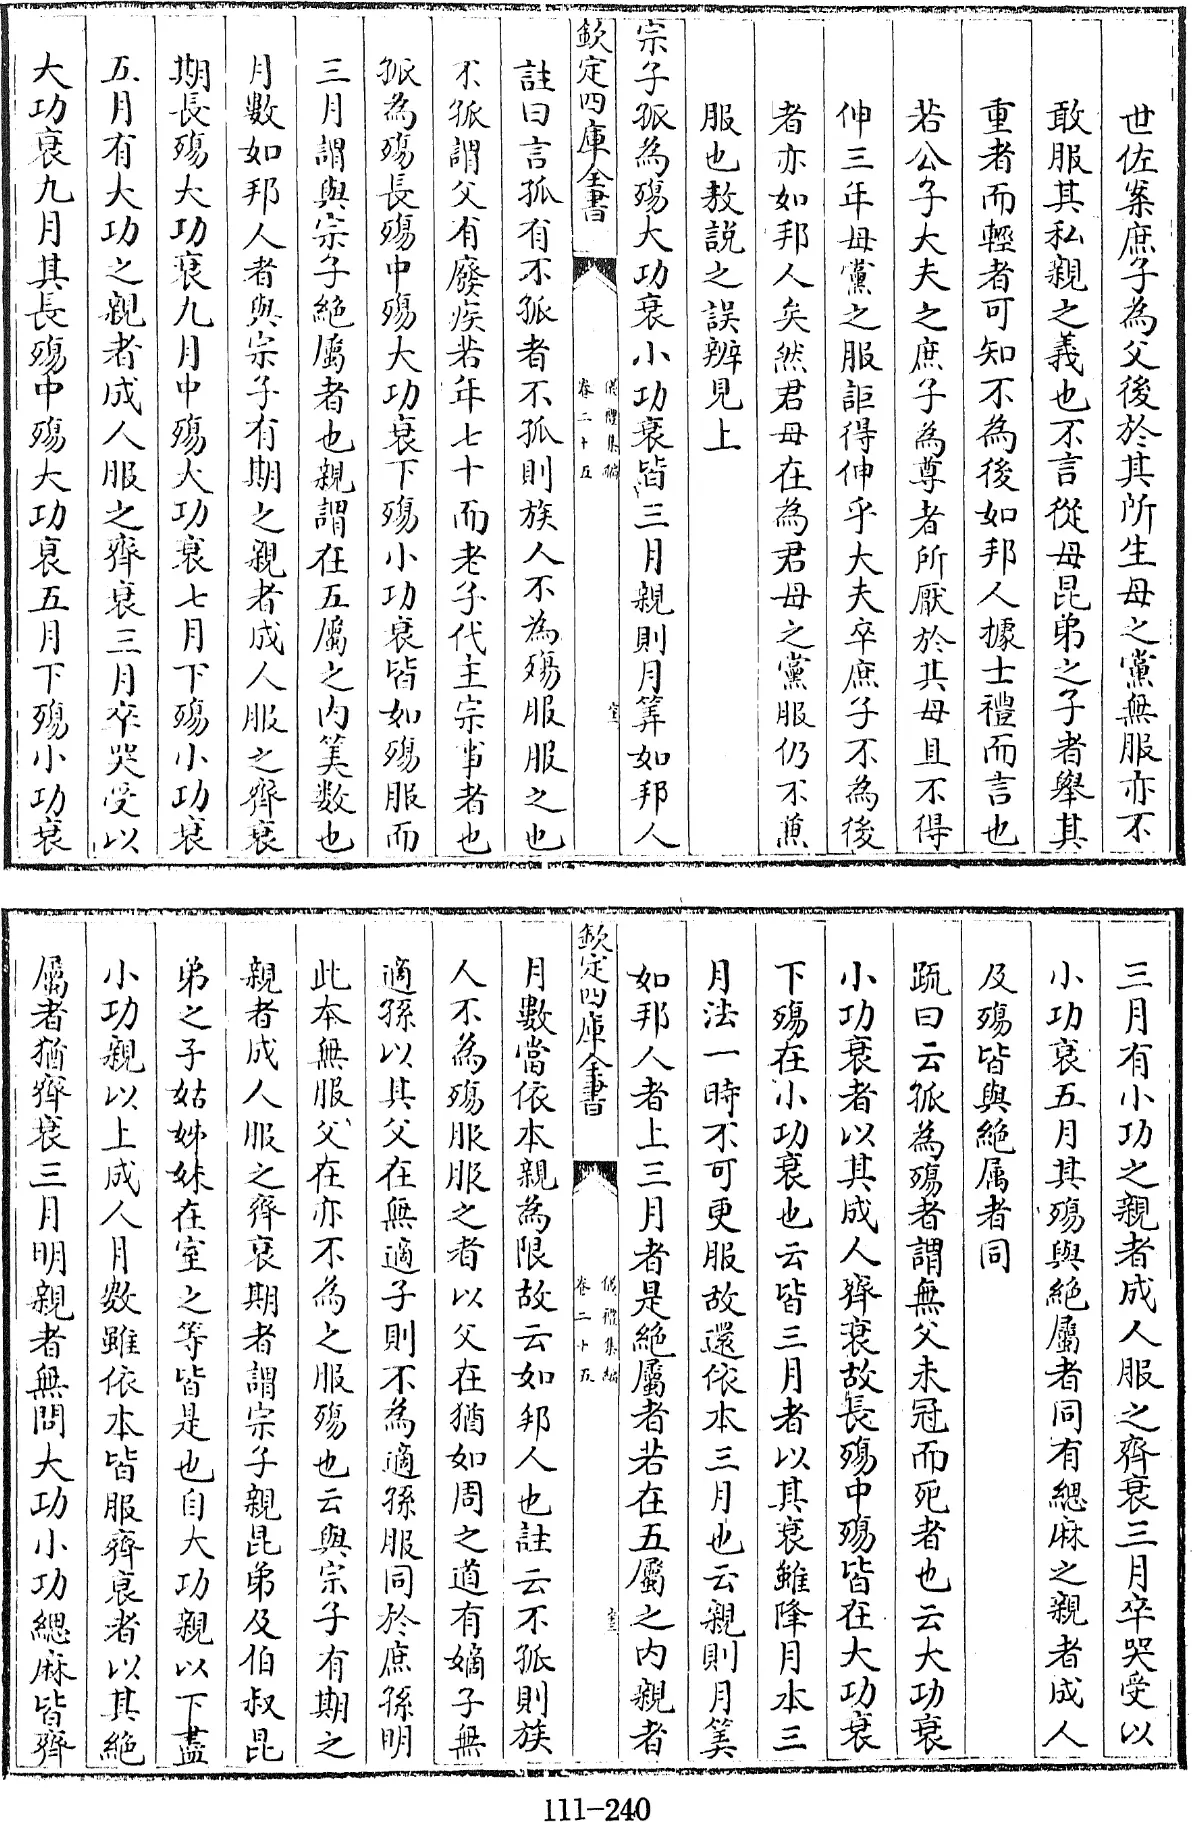 世佐案庶子為父後於其所生母之黨無服亦不
敢服其私親之義也不言從母昆弟之子者舉其
重者而輕者可知不為後如邦人據士禮而言也
若公子大夫之庶子為尊者所厭於其母且不得
伸三年母黨之服詎得伸乎大夫卒庶子不為後
者亦如邦人矣然君母在為君母之黨服仍不兼
服也敖説之誤辨見上
宗子孤為殤大功衰小功衰皆三月親則月筭如邦人
欽定四庫全書
儀禮集編
卷二十五
註曰言孤有不孤者不孤則族人不為殤服服之也
不孤謂父有廢疾若年七十而老子代主宗事者也
孤為殤長殤中殤大功衰下殤小功衰皆如殤服而
三月謂與宗子絶屬者也親謂在五屬之内筭數也
月數如邦人者與宗子有期之親者成人服之齊衰
期長殤大功衰九月中殤大功衰七月下殤小功衰
五月有大功之親者成人服之齊衰三月卒哭受以
大功衰九月其長殤中殤大功衰五月下殤小功衰
三月有小功之親者成人服之齊衰三月卒哭受以
小功衰五月其殤與絶屬者同有緦麻之親者成人
及殤皆與絶属者同
疏曰云孤為殤者謂無父未冠而死者也云大功衰
小功衰者以其成人齊衰故長殤中殤皆在大功衰
下殤在小功衰也云皆三月者以其衰雖降月本三
月法一時不可更服故還依本三月也云親則月筭
如邦人者上三月者是絶屬者若在五屬之内親者
欽定四庫全書
儀禮集編
卷二十五
月數當依本親為限故云如邦人也註云不孤則族
人不為殤服服之者以父在猶如周之道有嫡子無
適孫以其父在無適子則不為適孫服同於庶孫明
此本無服父在亦不為之服殤也云與宗子有期之
親者成人服之齊衰期者謂宗子親昆弟及伯叔昆
弟之子姑姊妹在室之等皆是也自大功親以下盡
小功親以上成人月數雖依本皆服齊衰者以其絶
屬者猶齊衰三月明親者無問大功小功緦麻皆齊
111-240